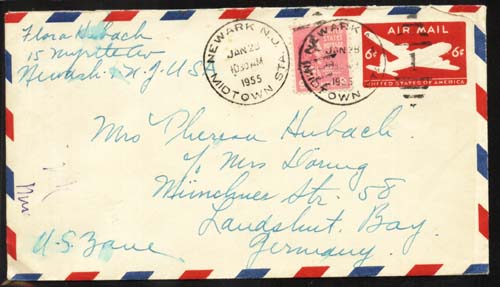 Flora Hubach
15 Myrtle Av
Newark N.J. U.S.
NEWARK N.J.
JAN 28
10 30 AM
1955
MIDTOWN STA.
NEWARK
JAN 28
1955
MIDTOWN
AIR MAIL
6¢ 6¢
UNITED STATES OF AMERICA
Mrs Theresa Hubach
c/o Mrs Döring
Münchner Str. 58
Landshut, Bay.
Germany.
U.S. Zone